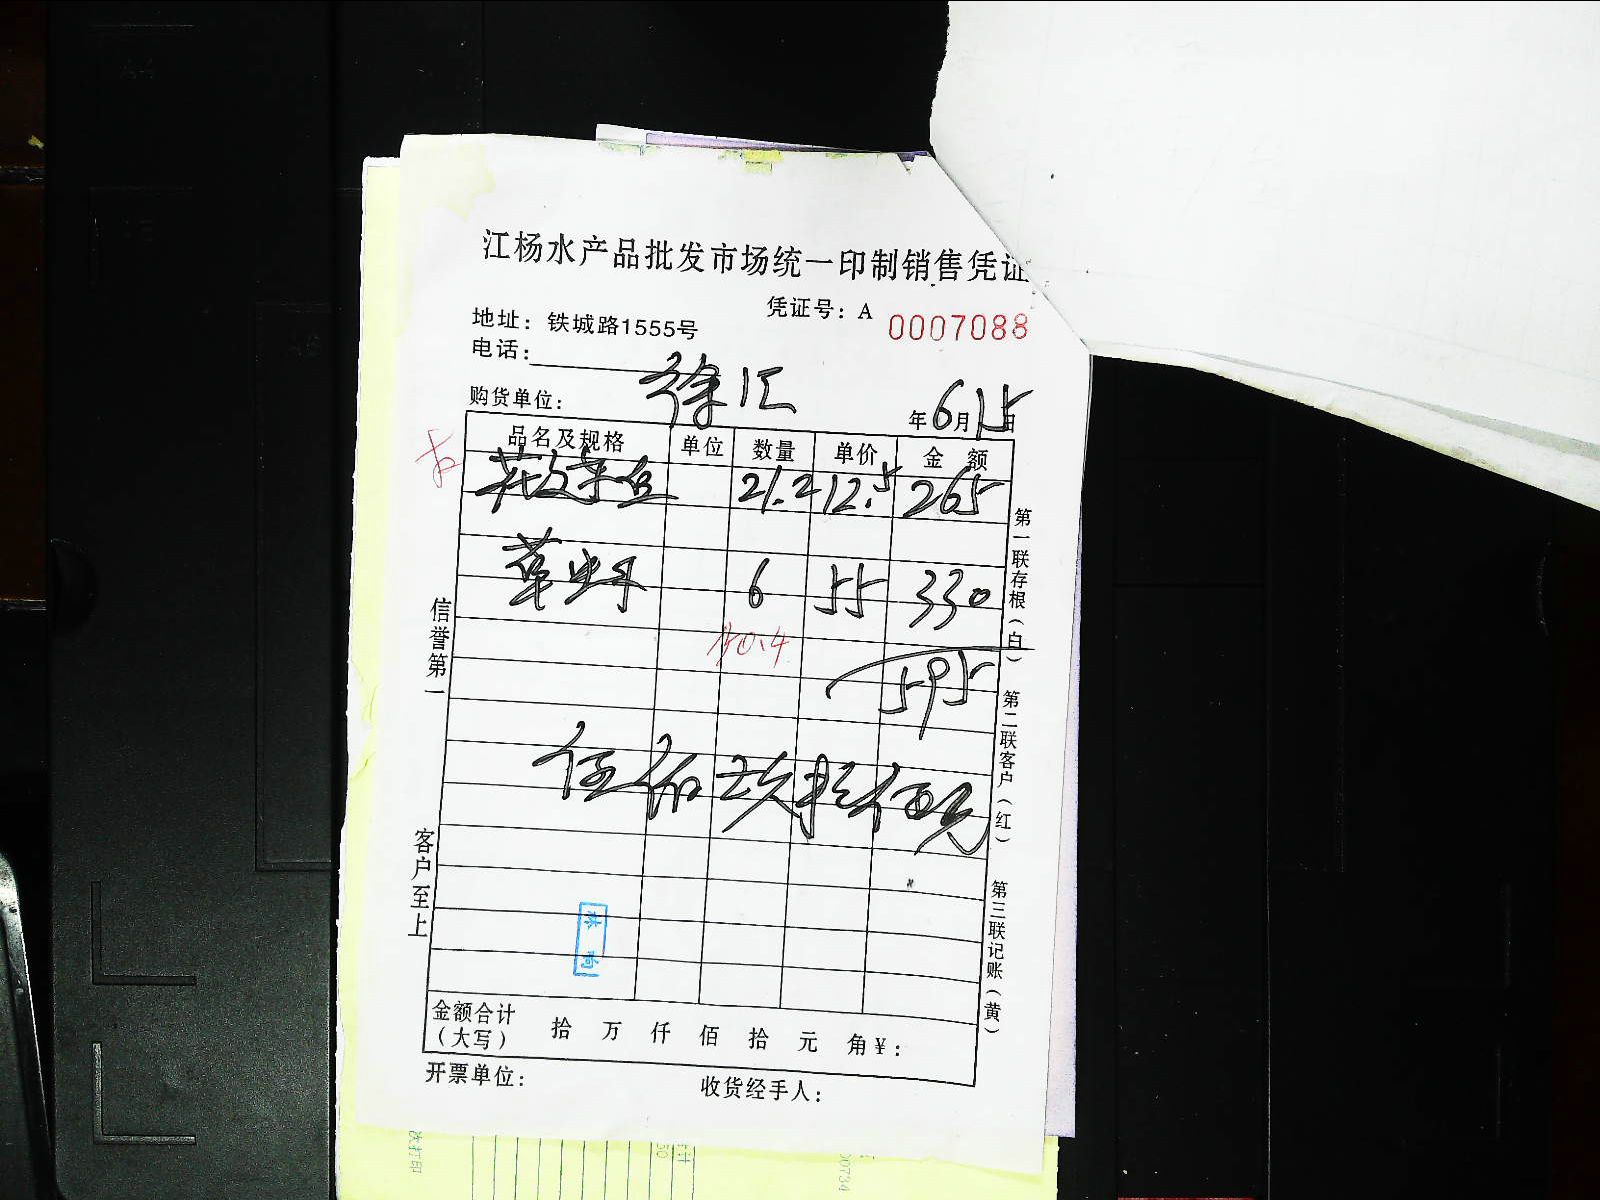 江杨水产品批发市场统一印制销售凭证
凭证号：A 0007088
地址：铁城路1555号
电话：
购货单位： 徐汇 年6月15日
品名及规格 单位 数量 单价 金额
21.2 12.5 265
草虾 6 55 330
595
伍佰玖拾伍元
金额合计（大写） 拾 万 仟 佰 拾 元 角 ¥：
开票单位： 收货经手人：
信誉第一
客户至上
第一联存根（白）
第二联客户（红）
第三联记账（黄）